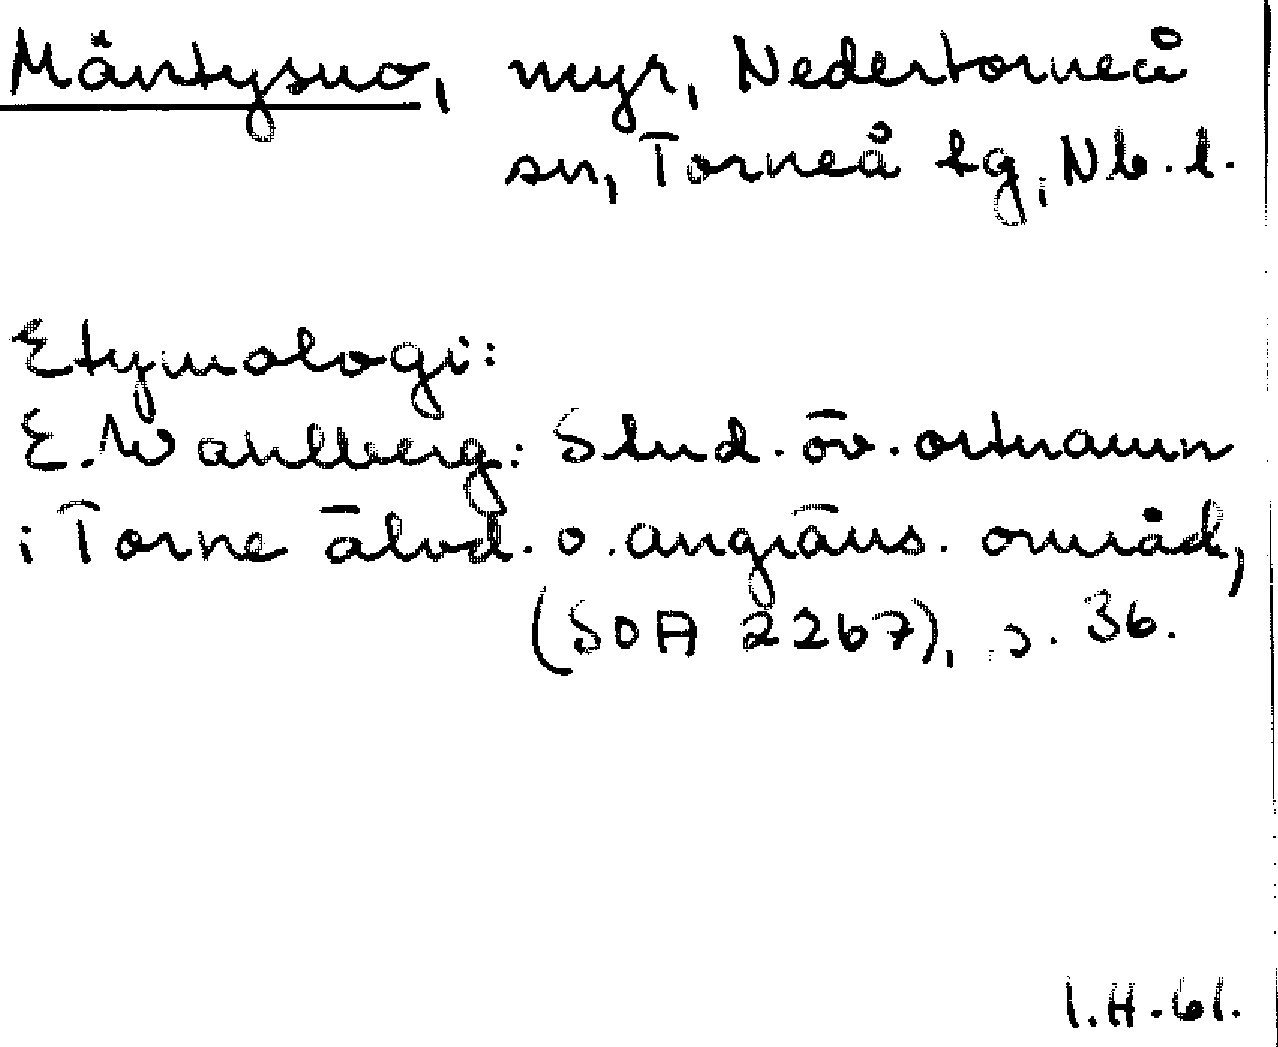 Mäntysuo, myr, Nedertorneå
sn, Torneå tg, Nb. l.
Etymologi:
E. Wahlberg: Stud. öv. ortnamn
i Torne älvd. o. angräns. områd,
(SOA 2267), s. 36.
I.H. 61.